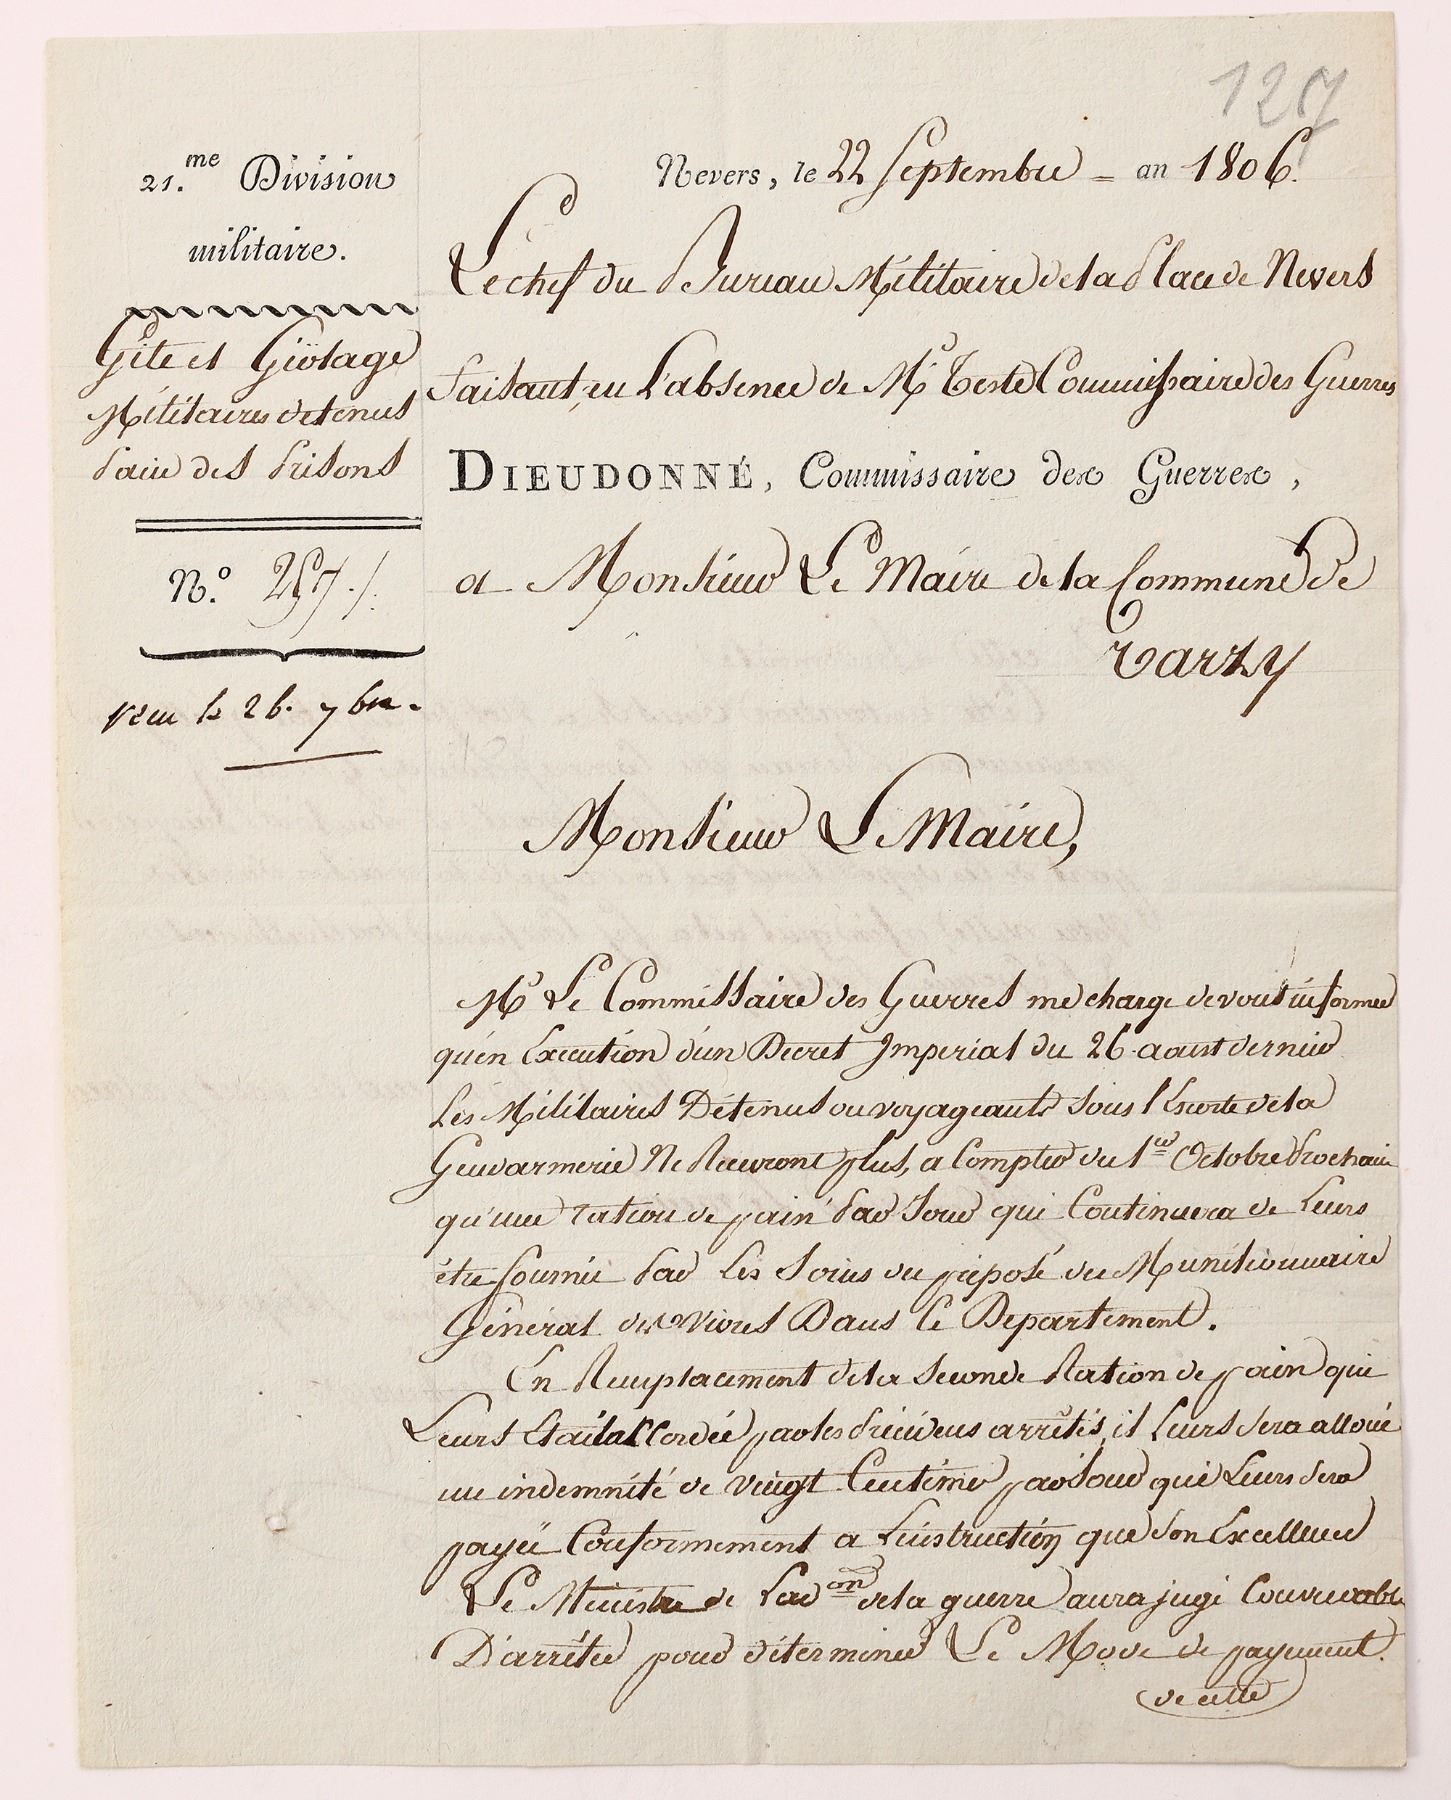 127
21.me Division
militaire.
Gîte et Géolage
Militaires detenus
Pain des Prisons
N.o 257./.
reçu le 26. 7bre.
Nevers, le 22 Septembre - an 1806.
Le chef du Bureau Militaire de la Place de Nevers
faisant, en L'absence de Mr Teste Commissaire des Guerres
DIEUDONNÉ, Commissaire des Guerres,
a Monsieur Le Maire de la Commune de
Tarzy
Monsieur Le Maire,
Mr Le Commissaire des Guerres me charge de vous informer
qu'en Execution d'un Decret Imperial du 26 aoust dernier
Les Militaires Détenus ou voyageants sous l'Escorte de la
Gendarmerie Ne Recevront plus, a Compter du 1er Octobre Prochain
qu'une ration de pain Par Jour qui Continuera de Leurs
être fournie Par Les Soins du préposé du Munitionnaire
Général des vivres Dans Le Departement.
En Remplacement de la Seconde Ration de pain qui
Leurs Etait accordée par les précédens arrêtés, il Leurs sera alloué
une indemnité de vingt Centimes par Jour qui Leurs sera
payée Conformement a L'instruction que Son Excellence
Le Ministre de L'adon de la guerre aura jugé Convenable
D'arrêter pour déterminer Le Mode de payement.
de cette